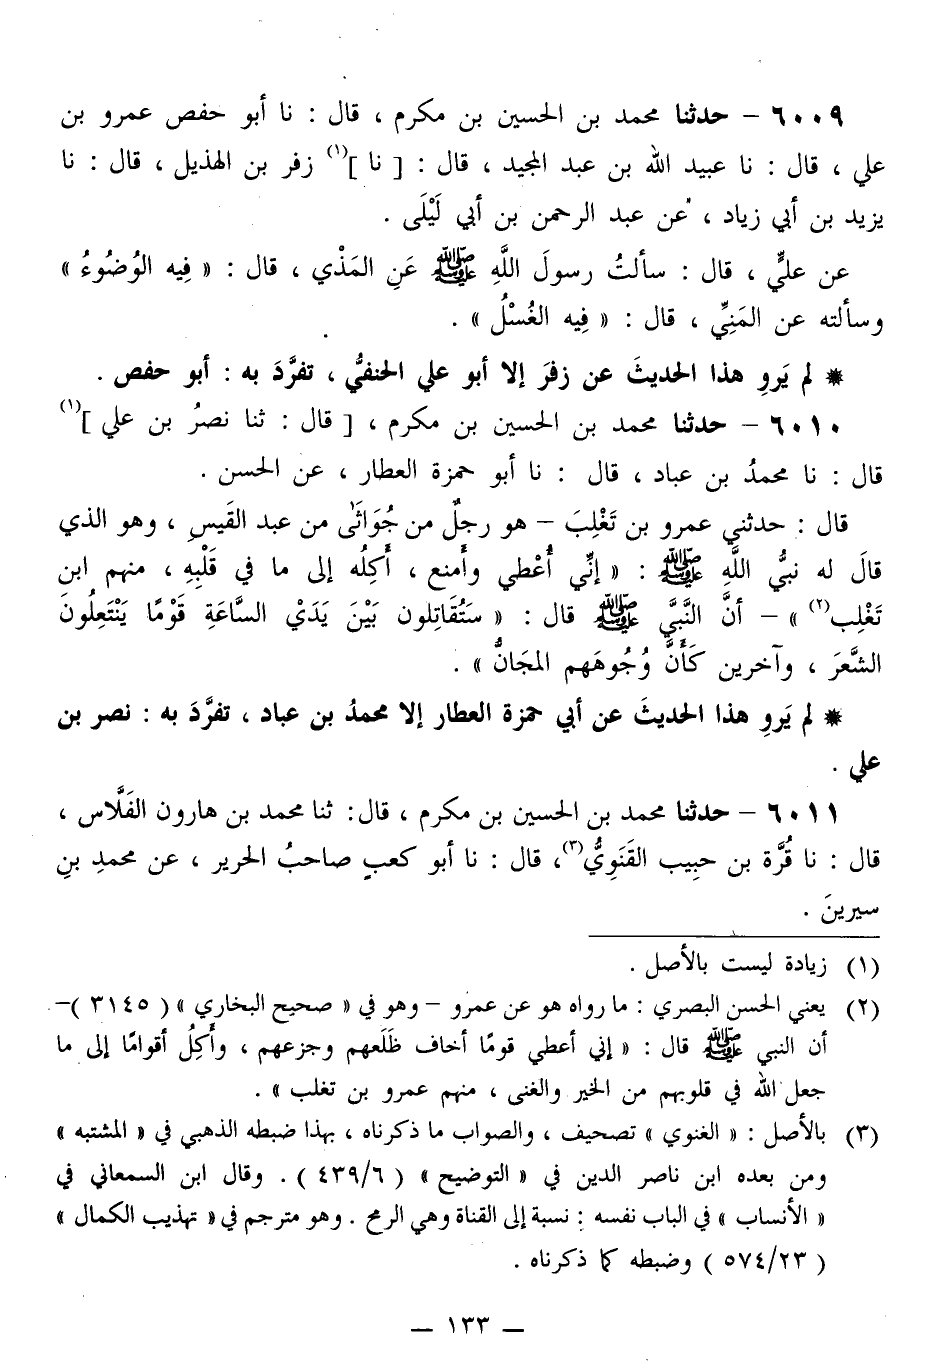 ٦٠٠٩ – حدثنا محمد بن الحسين بن مكرم ، قال : نا أبو حفص عمرو بن
علي ، قال : نا عبيد الله بن عبد المجيد ، قال : [ نا ](١) زفر بن الهذيل ، قال : نا
يزيد بن أبي زياد ، عن عبد الرحمن بن أبي لَيْلَى .
عن عليٍّ ، قال : سألتُ رسولَ اللَّهِ ﷺ عَنِ المَذْي ، قال : « فِيه الوُضُوءُ »
وسألته عن المَنِيِّ ، قال : « فِيه الغُسْلُ » .
* لم يَروِ هذا الحديثَ عن زفرَ إلا أبو علي الحنفيُّ ، تفرَّدَ به : أبو حفص .
٦٠١٠ – حدثنا محمد بن الحسين بن مكرم ، [ قال : ثنا نصرُ بن علي ](١)
قال : نا محمدُ بن عباد ، قال : نا أبو حمزة العطار ، عن الحسن .
قال : حدثني عمرو بن تَغْلِبَ – هو رجلٌ من جُوَاثَى من عبد القَيسِ ، وهو الذي
قالَ له نبيُّ اللَّهِ ﷺ : « إنِّي أُعْطي وأَمنع ، أَكِلُه إلى ما في قَلْبِهِ ، منهم ابن
تَغْلِب(٢) » – أنَّ النَّبيَّ ﷺ قال : « سَتُقَاتِلون بَيْنَ يَدَيْ السَّاعَةِ قَوْمًا يَنْتَعِلُونَ
الشَّعَرَ ، وآخرين كَأَنَّ وُجُوهَهم المجَانُّ » .
* لم يَروِ هذا الحديثَ عن أبي حمزة العطار إلا محمدُ بن عباد ، تفرَّدَ به : نصر بن
علي .
٦٠١١ – حدثنا محمد بن الحسين بن مكرم ، قال : ثنا محمد بن هارون الفَلَّاس ،
قال : نا قُرَّة بن حبِيب القَنَوِيُّ(٣)، قال : نا أبو كعبٍ صاحبُ الحرير ، عن محمدِ بنِ
سيرينَ .
(١) زيادة ليست بالأصل .
(٢) يعني الحسن البصري : ما رواه هو عن عمرو – وهو في « صحيح البخاري » ( ٣١٤٥ )–
أن النبي ﷺ قال : « إني أعطي قومًا أخاف ظَلَعهم وجزعهم ، وأَكِلُ أقوامًا إلى ما
جعل الله في قلوبهم من الخير والغنى ، منهم عمرو بن تغلب » .
(٣) بالأصل : « الغنوي » تصحيف ، والصواب ما ذكرناه ، بهذا ضبطه الذهبي في « المشتبه »
ومن بعده ابن ناصر الدين في « التوضيح » ( ٤٣٩/٦ ) . وقال ابن السمعاني في
« الأنساب » في الباب نفسه : نسبة إلى القناة وهي الرمح . وهو مترجم في « تهذيب الكمال »
( ٥٧٤/٢٣ ) وضبطه كما ذكرناه .
– ١٣٣ –